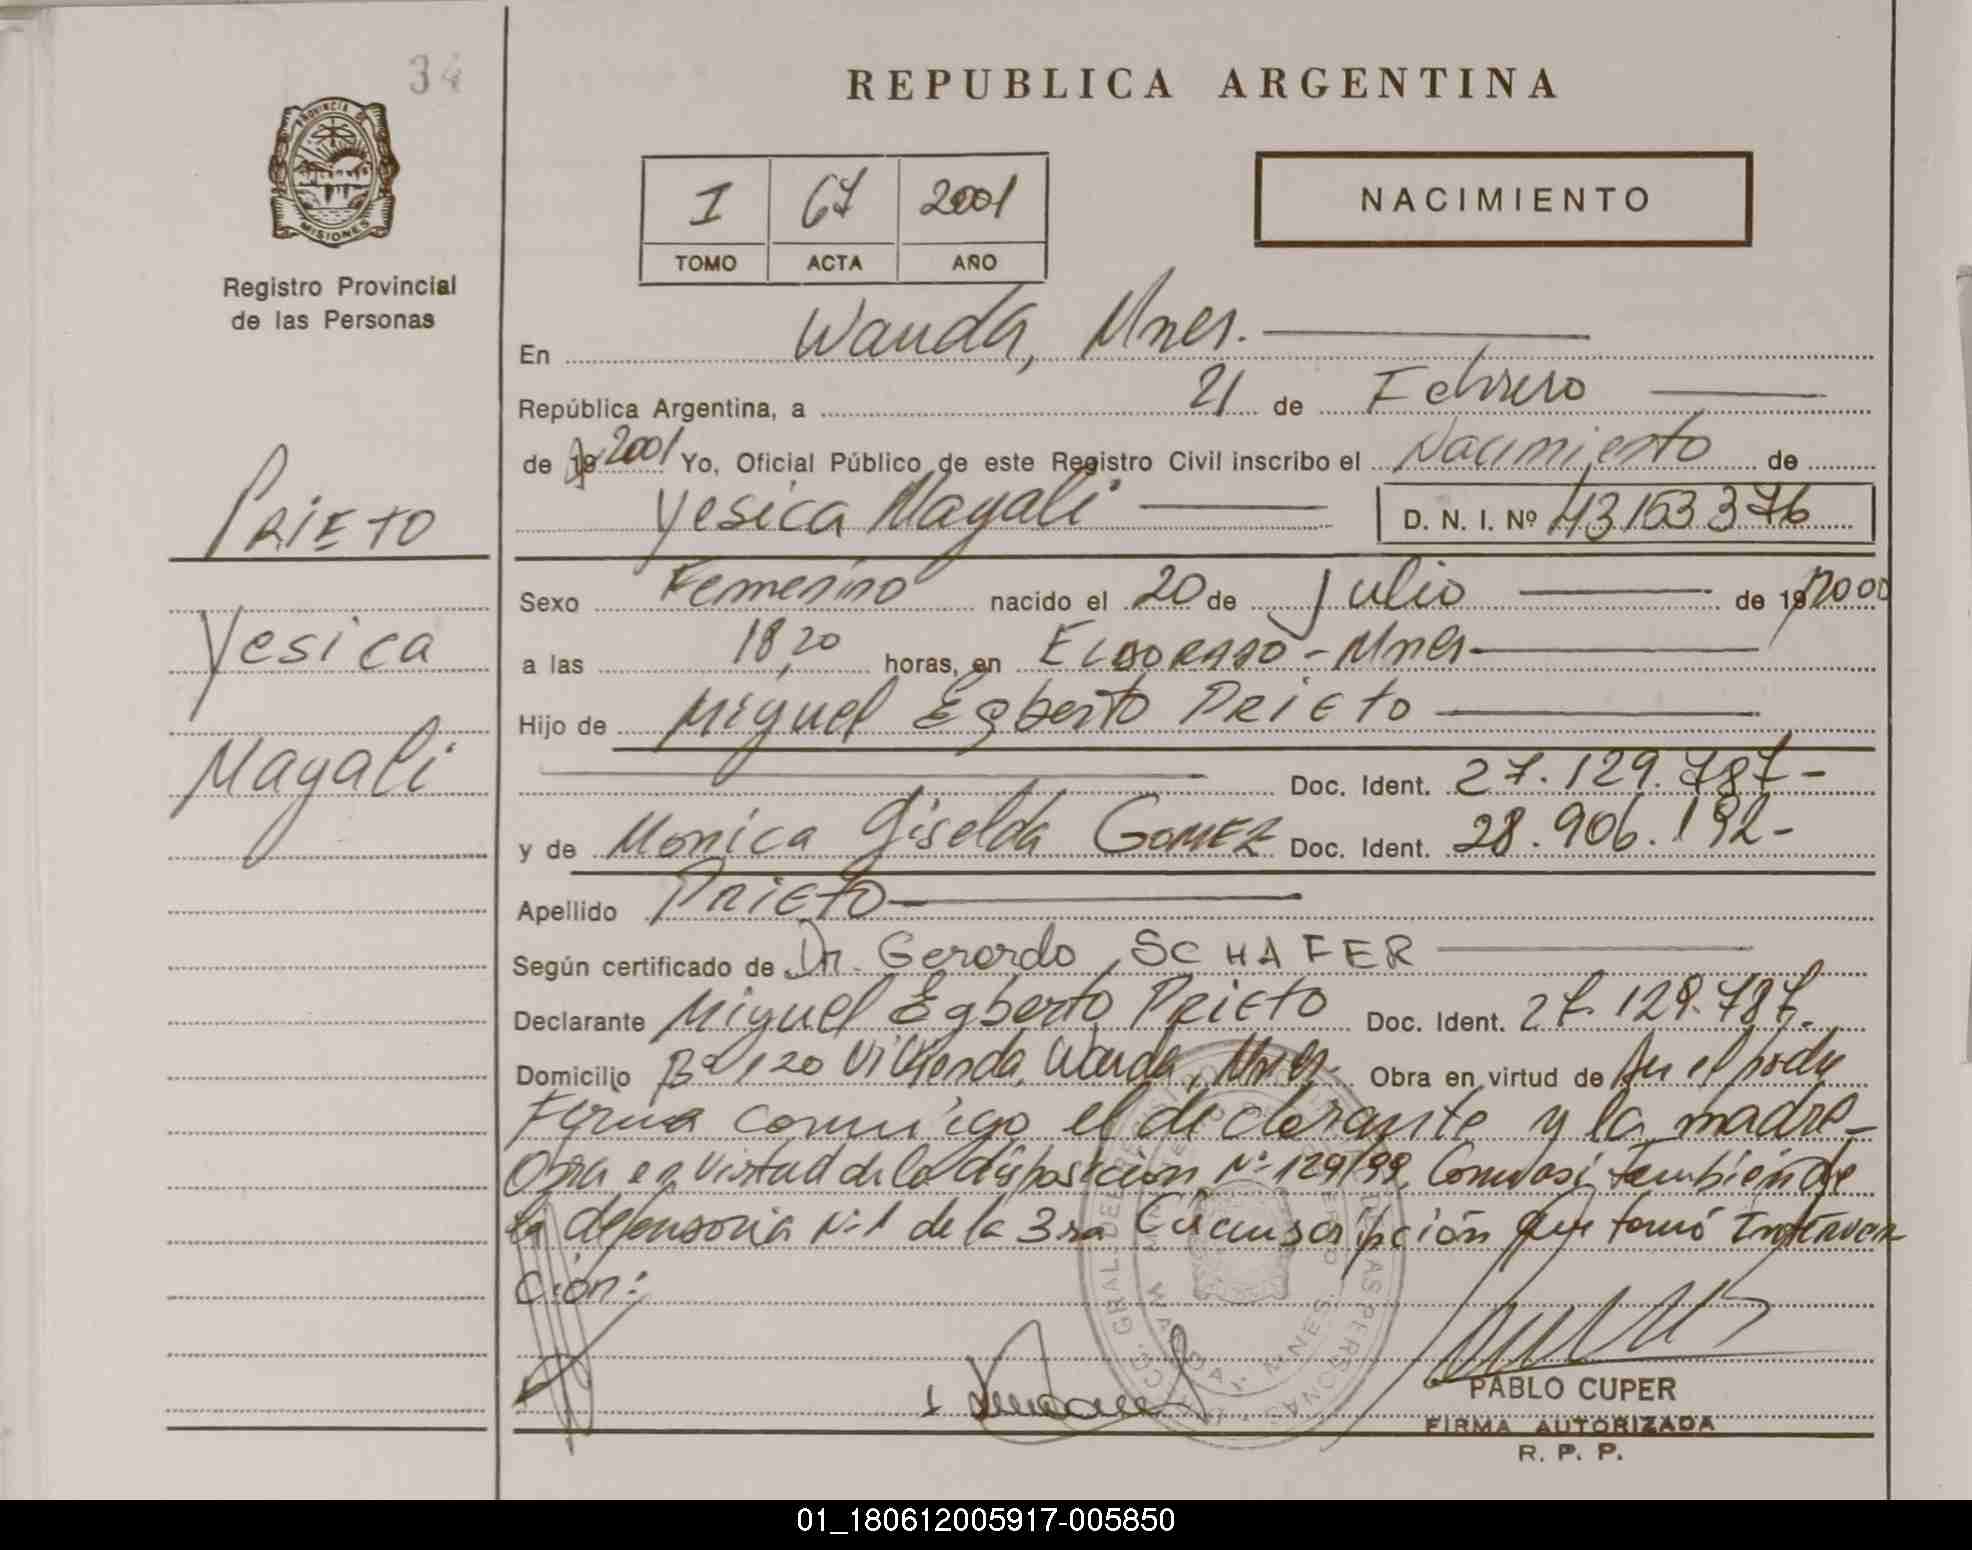 34
REPUBLICA ARGENTINA
PROVINCIA DE
MISIONES
Registro Provincial
de las Personas
I 67 2001
TOMO ACTA AÑO
NACIMIENTO
En Wanda, Mnes.
República Argentina, a 21 de Febrero
de 19 2001 Yo, Oficial Público de este Registro Civil inscribo el Nacimiento de
Yesica Magali D. N. I. Nº 43153376
PRIETO
Yesica
Magali
Sexo Femenino nacido el 20 de Julio de 19 2000
a las 18,20 horas, en ELDORADO - Mnes-
Hijo de Miguel Egberto PRIETO
Doc. Ident. 27.129.787-
y de Monica Giselda GOMEZ Doc. Ident. 28.906.192-
Apellido PRIETO
Según certificado de Dr. Gerardo SCHAFER
Declarante Miguel Egberto PRIETO Doc. Ident. 27.129.787.
Domicilio Bº 120 Vivienda, Wanda, Mnes. Obra en virtud de
Firma conmigo el declarante y la madre-
Obra en virtud de la disposición Nº 129/99, Como así también de
la defensoria Nº 1 de la 3ra Circunscripción que tomó Interven
ción:
PABLO CUPER
FIRMA AUTORIZADA
R. P. P.
01_180612005917-005850